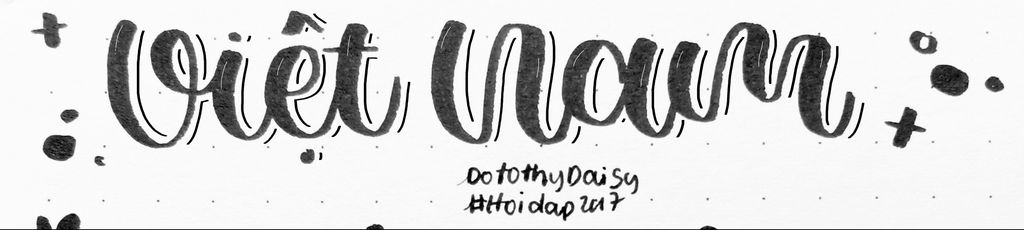 Việt Nam
DotothyDaisy
#Hoidap2017